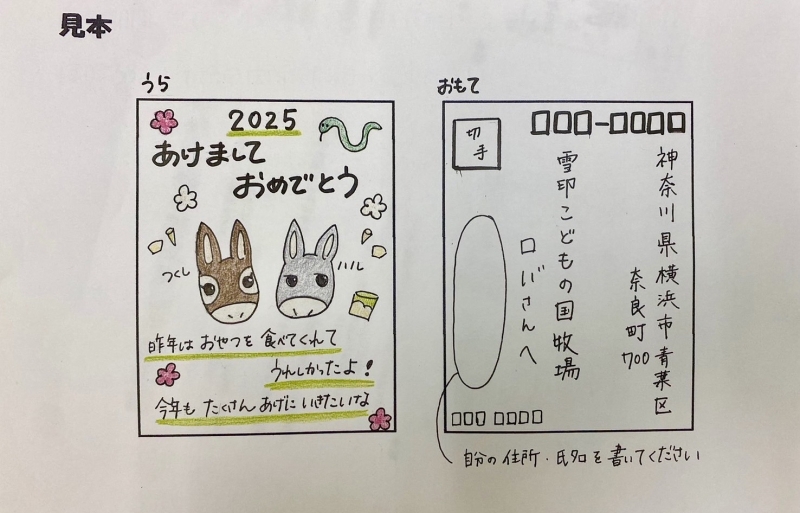 見本
うら
2025
あけまして
おめでとう
つくし
ハル
昨年は おやつを 食べてくれて
うれしかったよ!
今年も たくさん あげに いきたいな
おもて
切手
神奈川県横浜市青葉区
奈良町700
雪印こどもの国牧場
ロバさんへ
自分の住所・氏名を書いてください